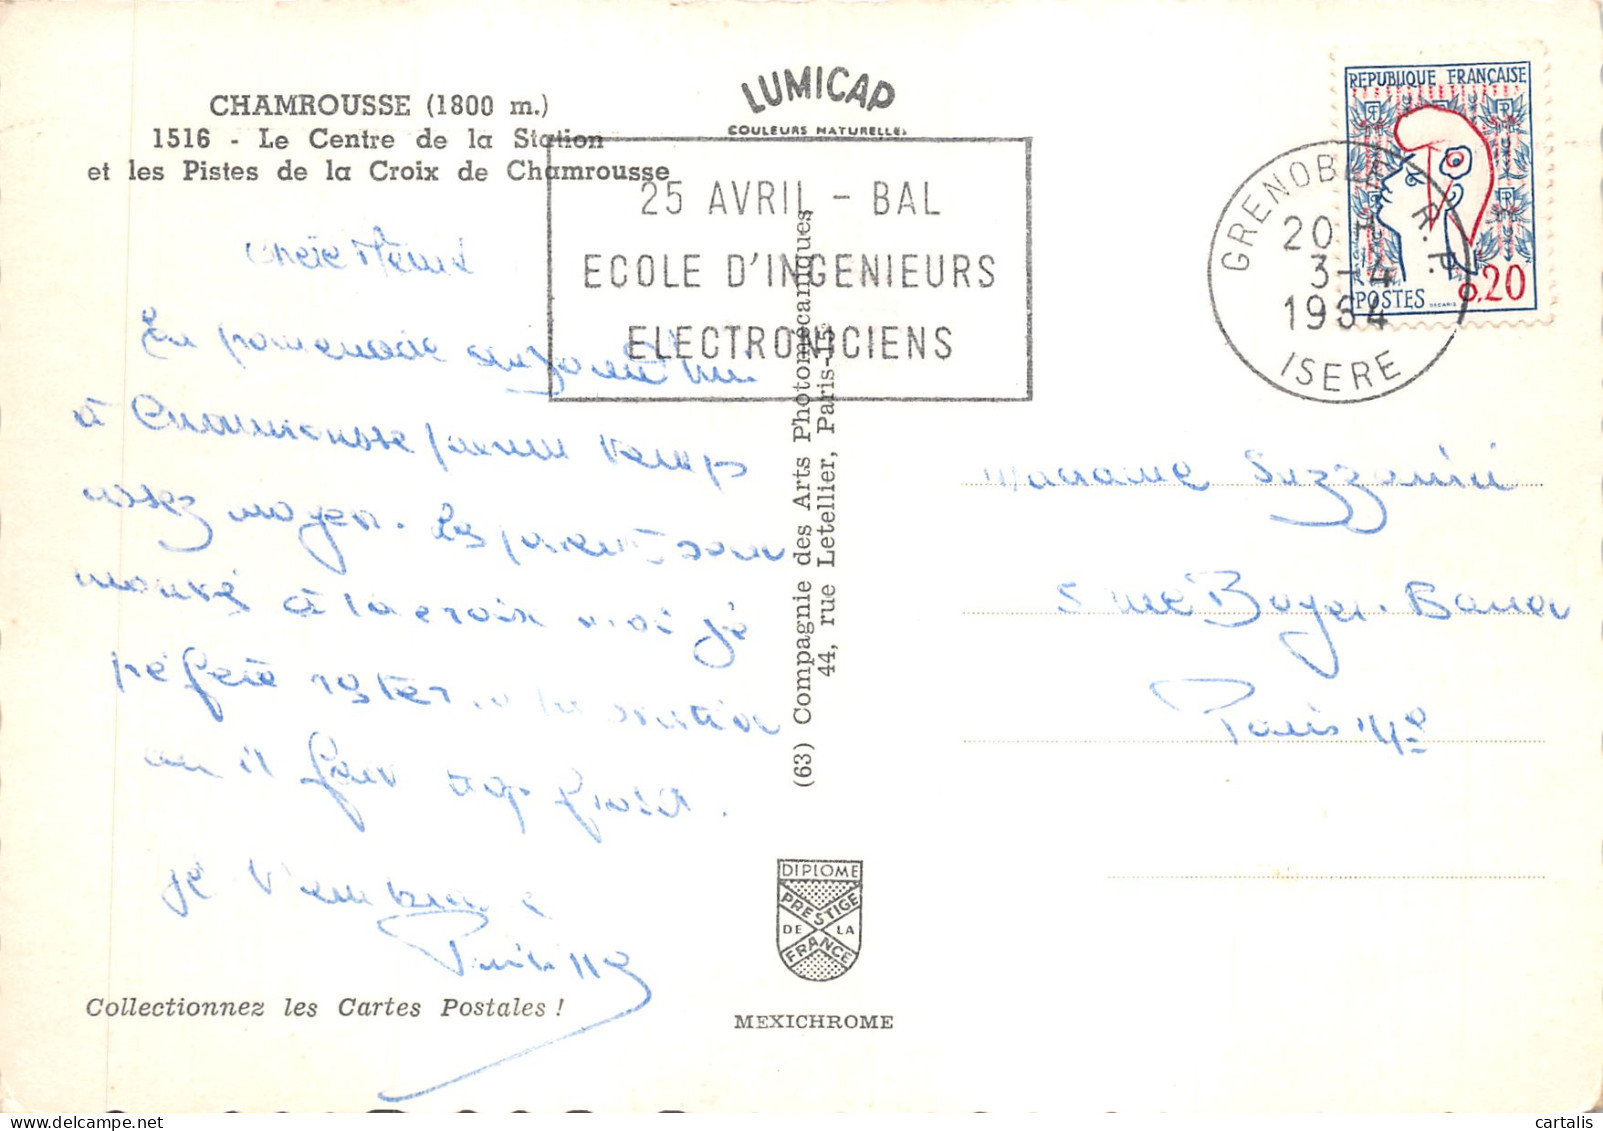 CHAMROUSSE (1800 m.)
1516 - Le Centre de la Station
et les Pistes de la Croix de Chamrousse
LUMICAP
COULEURS NATURELLES
25 AVRIL - BAL
ECOLE D'INGENIEURS
ELECTRONICIENS
GRENOBLE R.P.
20 H
3-4
1964
ISERE
REPUBLIQUE FRANÇAISE
RF
POSTES
0.20
DECARIS
chère Mémé
En promenade aujourd'hui
à Chamrousse par un temps
assez moyen. Les parents sont
montés à la croix moi je
préfère rester à la station
car il fait trop froid.
je t'embrasse
Philippe
Madame Suzzarini
5 rue Boyer-Barret
Paris 14e
(63) Compagnie des Arts Photomécaniques
44, rue Letellier, Paris-15e
DIPLOME
PRESTIGE
DE LA
FRANCE
MEXICHROME
Collectionnez les Cartes Postales !
cartalis
delcampe.net